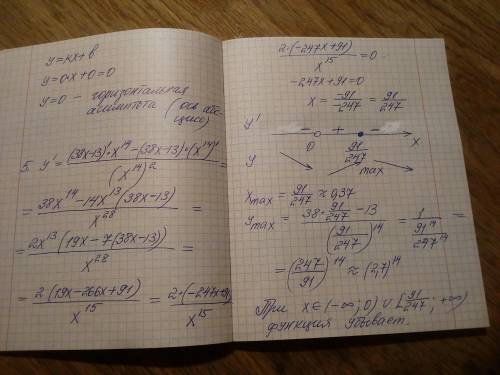 y = kx + b
y = 0·x + 0 = 0
y = 0 – горизонтальная
асимптота (ось абс-
цисс)
5. y' = ((38x-13)'·x^14 - (38x-13)·(x^14)')/(x^14)^2 =
= (38x^14 - 14x^13(38x-13))/x^28 =
= 2x^13(19x - 7(38x-13))/x^28 =
= 2(19x - 266x + 91)/x^15 = 2·(-247x+91)/x^15
2·(-247x+91)/x^15 = 0
-247x + 91 = 0
x = -91/-247 = 91/247
y' – + –
0 91/247 x
y max
x max = 91/247 ≈ 0,37
y max = (38·91/247 - 13)/(91/247)^14 = 1/(91^14/247^14) =
= (247/91)^14 ≈ (2,7)^14
При x ∈ (-∞; 0) ∪ [91/247; +∞)
функция убывает.